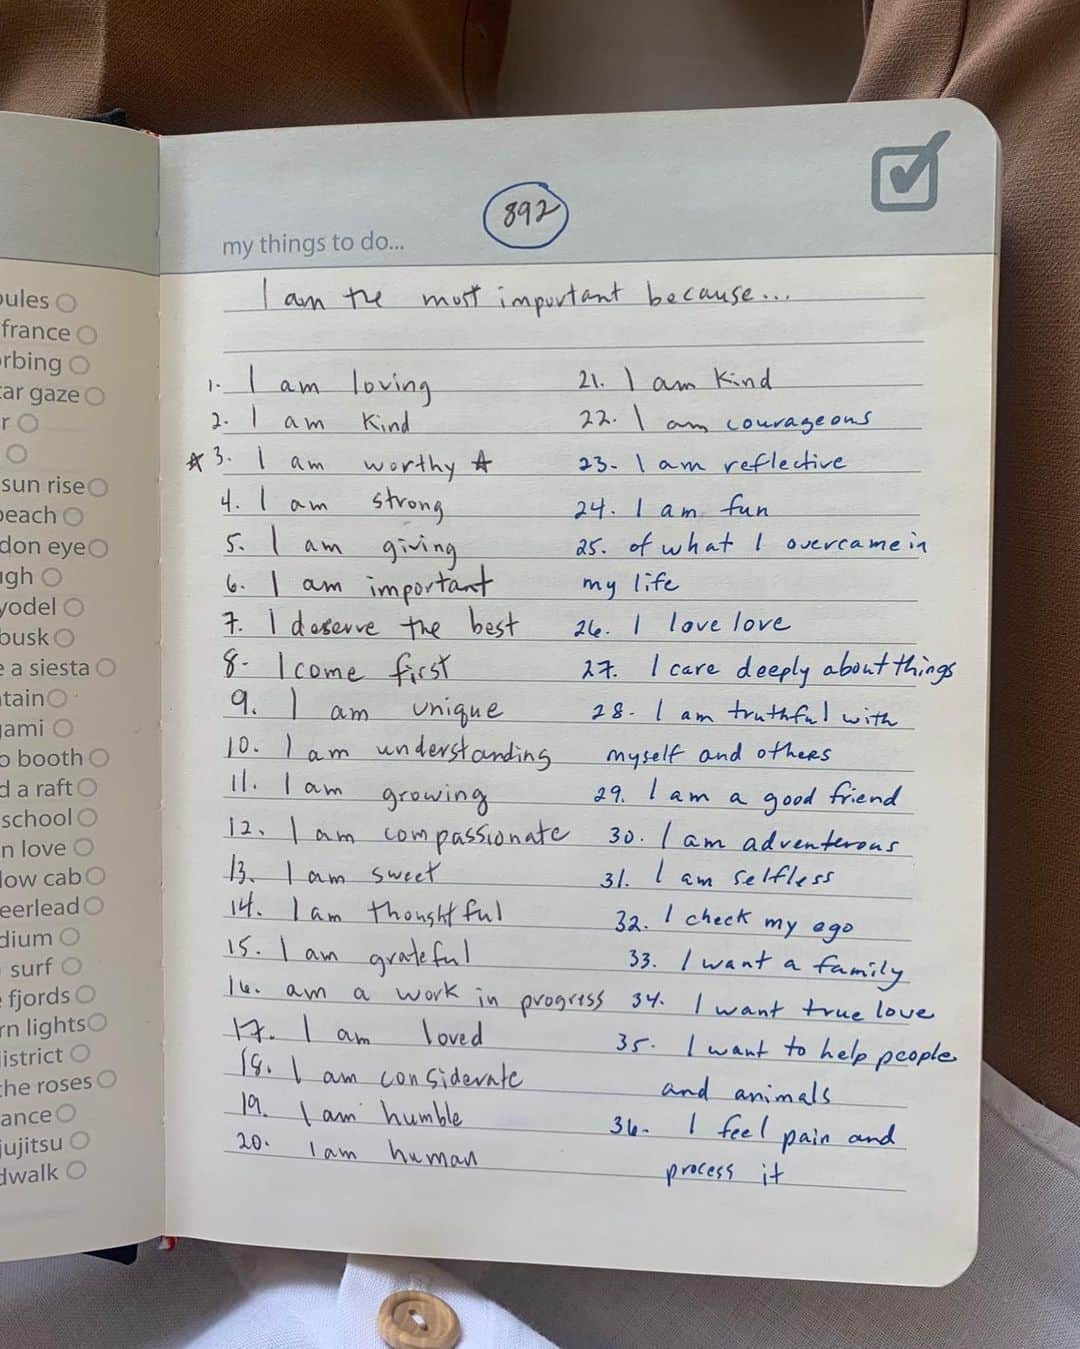 892
my things to do...
I am the most important because...
1. I am loving
2. I am kind
☆ 3. I am worthy ☆
4. I am strong
5. I am giving
6. I am important
7. I deserve the best
8. I come first
9. I am unique
10. I am understanding
11. I am growing
12. I am compassionate
13. I am sweet
14. I am thoughtful
15. I am grateful
16. am a work in progress
17. I am loved
18. I am considerate
19. I am humble
20. I am human
21. I am kind
22. I am courageous
23. I am reflective
24. I am fun
25. of what I overcame in
my life
26. I love love
27. I care deeply about things
28. I am truthful with
myself and others
29. I am a good friend
30. I am adventerous
31. I am selfless
32. I check my ego
33. I want a family
34. I want true love
35. I want to help people
and animals
36. I feel pain and
process it
oules
france
orbing
ar gaze
r
sun rise
beach
don eye
ugh
yodel
busk
e a siesta
tain
gami
o booth
d a raft
school
n love
low cab
eerlead
dium
surf
fjords
rn lights
district
the roses
ance
jujitsu
dwalk